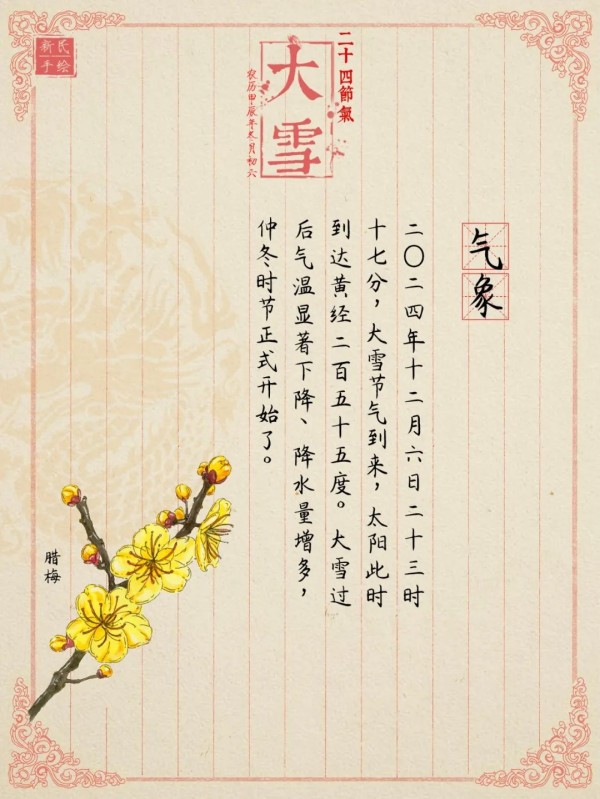 新民
手绘
二十四節氣
大雪
农历甲辰年冬月初六
气象
二〇二四年十二月六日二十三时
十七分，大雪节气到来，太阳此时
到达黄经二百五十五度。大雪过
后气温显著下降、降水量增多，
仲冬时节正式开始了。
腊梅